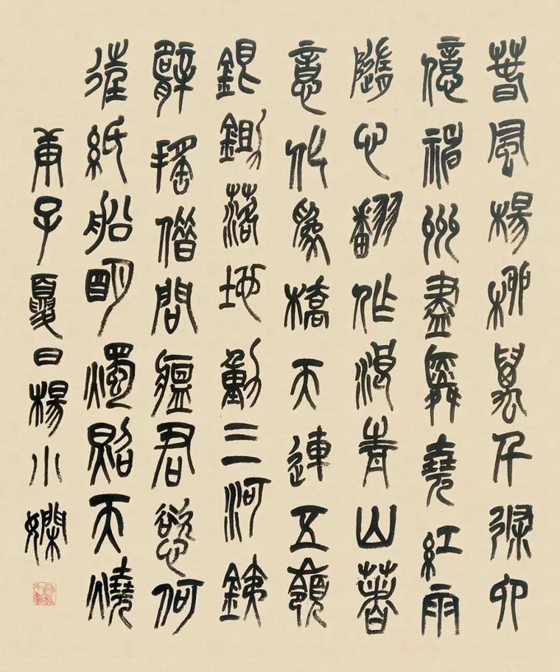 春風楊柳萬千條六
億神州盡舜堯紅雨
隨心翻作浪青山著
意化為橋天連五嶺
銀鋤落地動三河鐵
臂搖借問瘟君慾何
往紙船明燭照天燒
庚子夏日楊小嫻